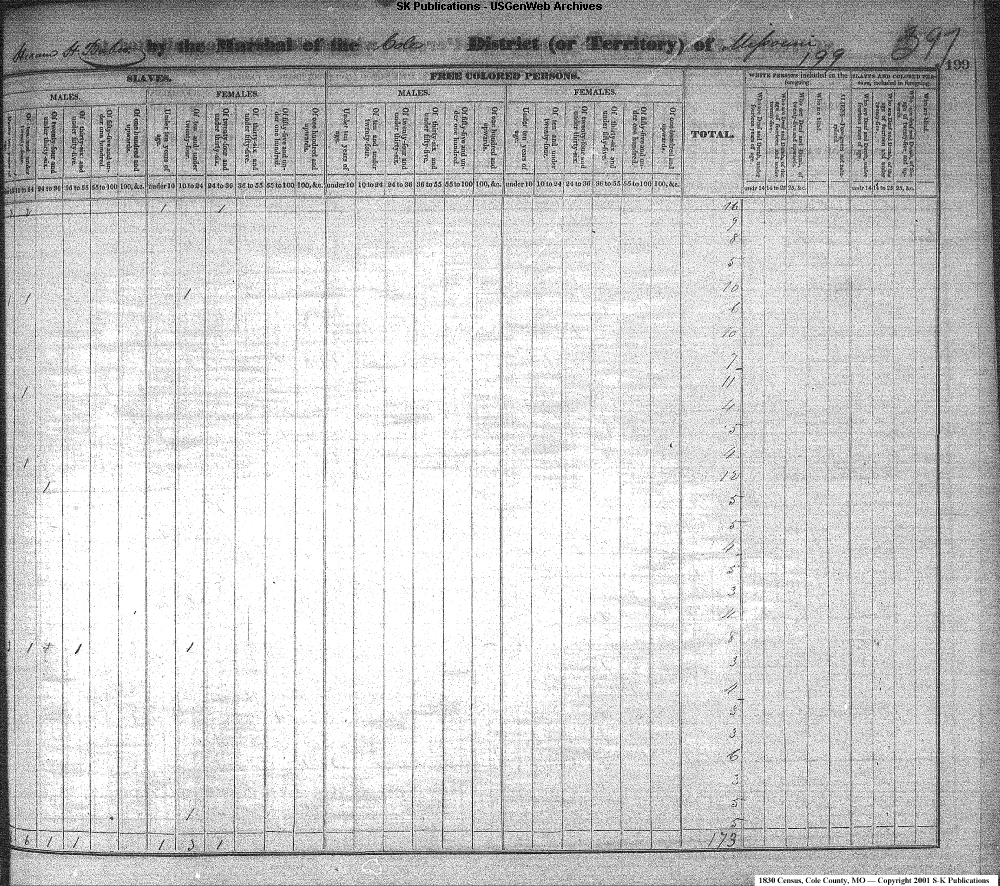 SK Publications - USGenWeb Archives
by the Marshal of the Cole District (or Territory) of Missouri
397
199
199
SLAVES. FREE COLORED PERSONS.
MALES. FEMALES. MALES. FEMALES.
TOTAL.
WHITE PERSONS included in the foregoing.
SLAVES AND COLORED PERSONS, included in the foregoing.
Of twenty-four and under thirty-six.
Of thirty-six and under fifty-five.
Of fifty-five and under one hundred.
Of one hundred and upwards.
Under ten years of age.
Of ten and under twenty-four.
Of twenty-four and under thirty-six.
Of thirty-six and under fifty-five.
Of fifty-five and under one hundred.
Of one hundred and upwards.
Under ten years of age.
Of ten and under twenty-four.
Of twenty-four and under thirty-six.
Of thirty-six and under fifty-five.
Of fifty-five and under one hundred.
Of one hundred and upwards.
Under ten years of age.
Of ten and under twenty-four.
Of twenty-four and under thirty-six.
Of thirty-six and under fifty-five.
Of fifty-five and under one hundred.
Of one hundred and upwards.
24 to 36 36 to 55 55 to 100 100, &c. under 10 10 to 24 24 to 36 36 to 55 55 to 100 100, &c. under 10 10 to 24 24 to 36 36 to 55 55 to 100 100, &c. under 10 10 to 24 24 to 36 36 to 55 55 to 100 100, &c.
1 1 16
9
8
5
1 1 10
6
10
7
1 11
4
5
1 4
1 12
5
5
4
5
3
4
1 1 1 8
3
4
5
3
6
3
1 5
5
6 1 1 1 3 1 173
1830 Census, Cole County, MO — Copyright 2001 S-K Publications